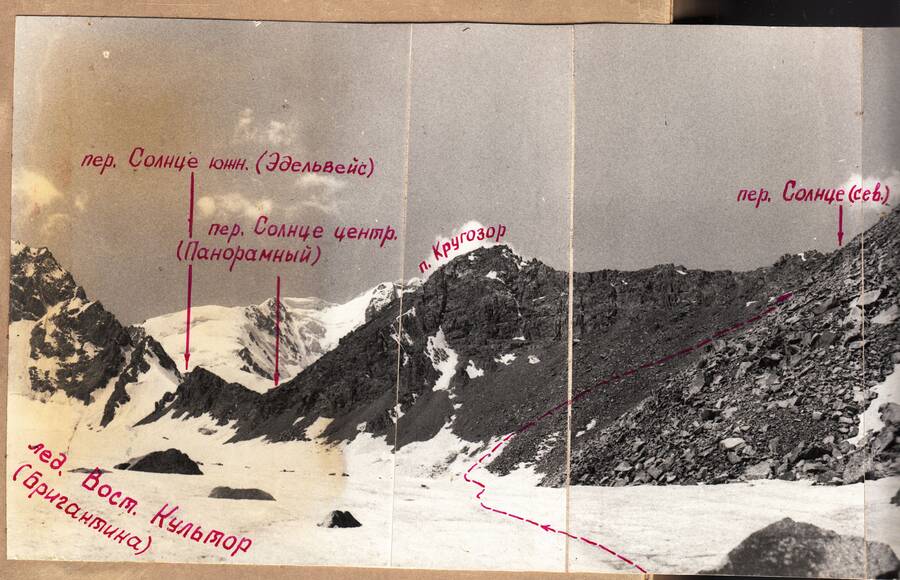 пер. Солнце южн. (Эдельвейс)
пер. Солнце (сев.)
пер. Солнце центр.
(Панорамный)
п. Кругозор
лед. Вост. Культор
(Бригантина)